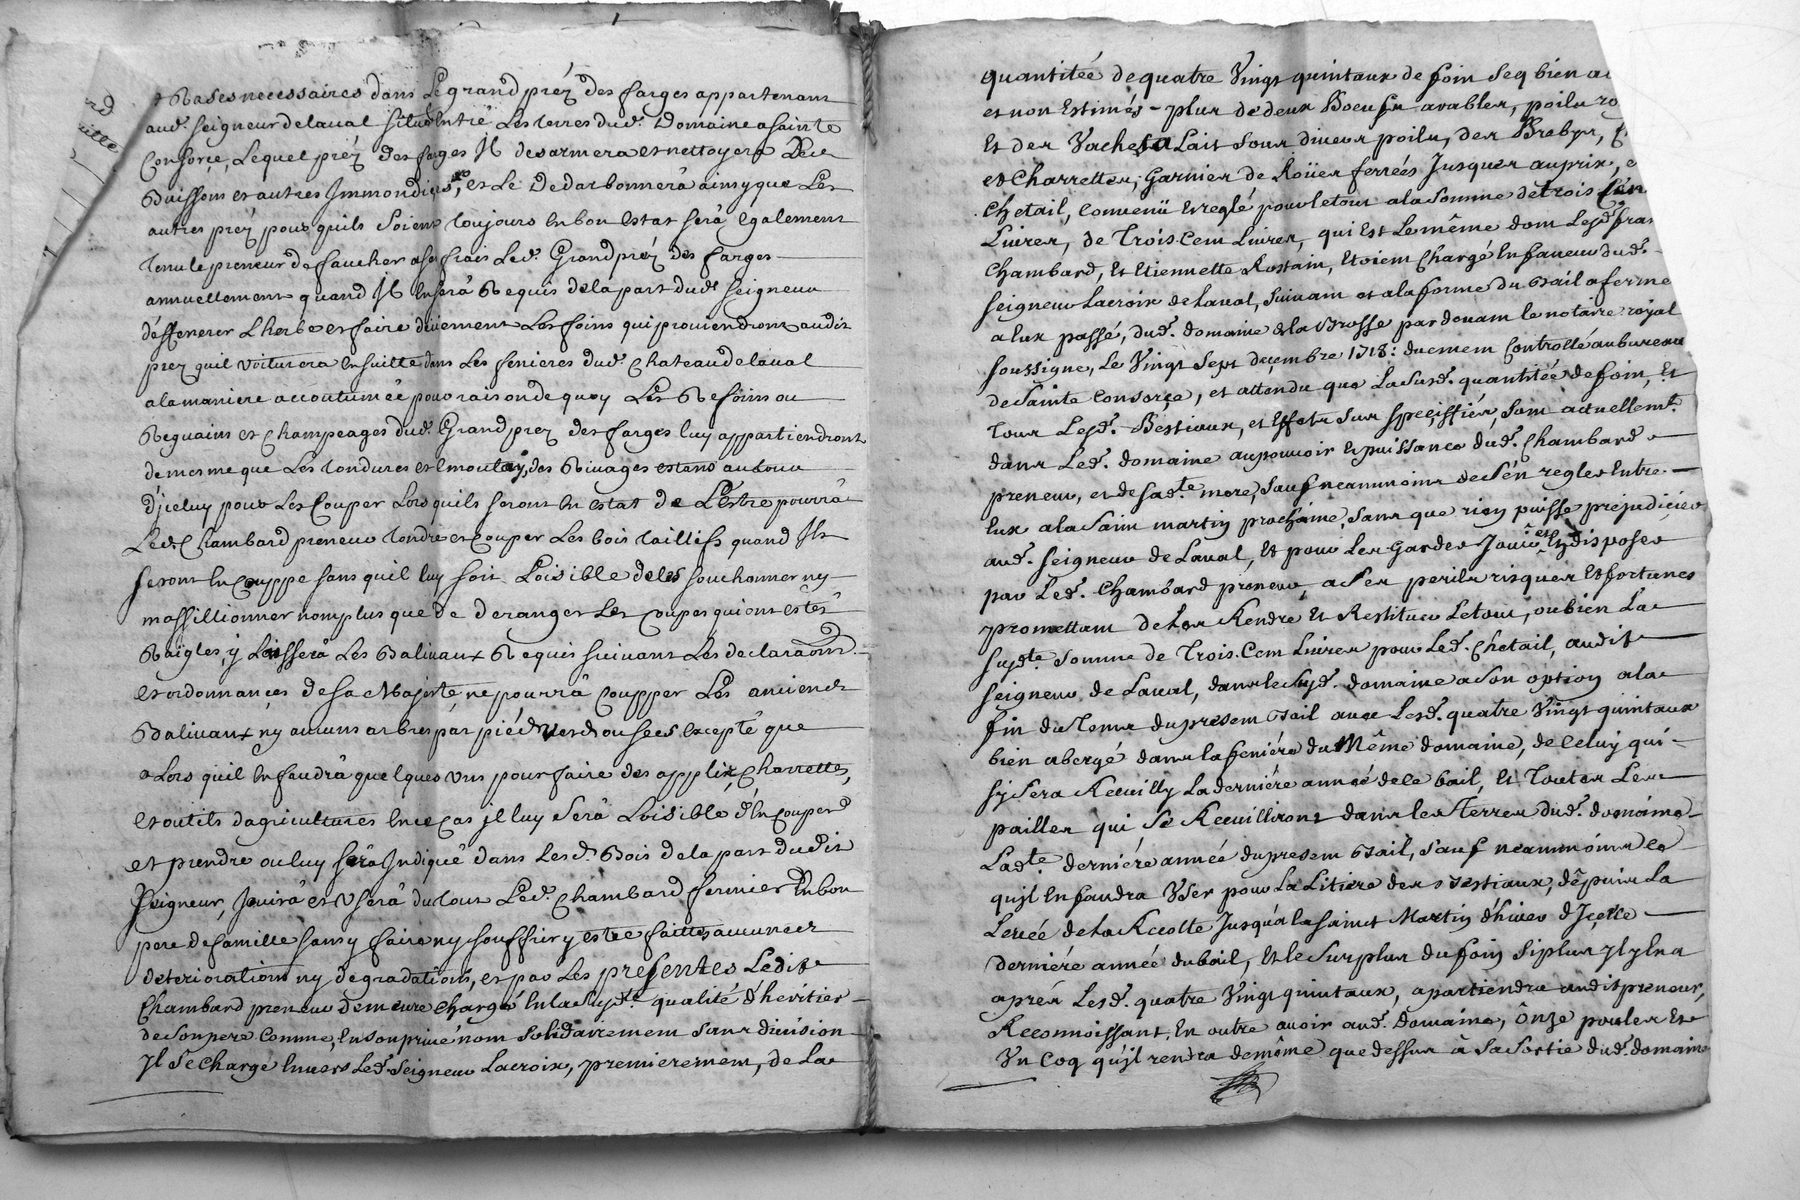 rd
uitte
& Rases necessaires dans Le grand préz des farges appartenant
aud. seigneur delaval situé Entre Les terres dud. Domaine a sainte
Consorce, Lequel préz des farges Il desarmera et nettoyera De
Buissons et autres Immondices, et Le Dedarbonnerà ainsy que Les
autres préz pour quils Soient toujours En bon Estat serà Egalement
tenu le preneur de faucher a ses frais Led. Grand préz des farges
annuellement quand Il En serà Requis dela part dud. seigneur
d'effenerer L'herbe et faire düement Les foins qui proviendront audit
prez quil voiturera Ensuitte dans Les fenieres dud. Chateau delaval
a la maniere accoutumée pour raison de quoy Les Refoins ou
Reguains et Champeages dud. Grand prez des farges luy appartiendront
de mesme que Les tondures et Emoulays des Rivages estans autour
d'jceluy pour Les Couper Lors quils seront En estat de L'Estre pourrà
Led. Chambard preneur tondre et Couper Les bois taillifs quand Ils
seront En Couppe sans quil luy soit Loisible de les souchonner ny
massillionner non plus que de deranger Les Coupes qui ont estés
Raigles, y Laisserà Les Balivaux Requis suivant Les declaraons
et ordonnances de sa Majesté ne pourrà Coupper Les anciens
Balivaux ny aucuns arbres par pied Verds ou secs Excepté que
Lors quil En faudrà quelques uns pour faire des applix, Charrettes,
Et outils dagricultures En ce cas jl luy Serà Loisible d'En Couper
et prendre ou luy sera Indiqué dans Lesd. Bois dela part dudit
seigneur, Jouirà et Userà du tout Led. Chambard fermier En bon
pere de famille sans y faire ny souffrir y estre faittes aucunes
deteriorations ny degradations, et par Les presentes Ledit
Chambard preneur demeure chargé En la susd.te qualité d'heritier
de son pere Comme, En son privé nom solidairement sans division
Il Se charge Envers Led. Seigneur Lacroix, premierement, de La
quantitée de quatre Vingt quintaux de foin Seq bien
et non Estimés - plus de deux Boeufs arables, poilu
Et des Vaches a Lait sous divers poilu, des Brebys,
et Charrettes, Garnier de Roües ferrées Jusques au prix,
Chetail, Convenü Et reglé pour le tout a la Somme de trois
Livres, de Trois Cent Livres, qui Est Le même dom Lesd.
Chambard, Et Etiennette Rostain, Etoient Chargé En faveur dud.
seigneur Lacroix de Laval, Suivant et a la forme du Bail a ferme
a lux passé, dud. domaine de la Brosse par devant le notaire royal
soussigne, Le Vingt Sept decembre 1718: duement Controllé au bureau
de Sainte Consorce, et attendu que La Susd. quantitée de foin, Et
tous Lesd. Bestiaux, et Effets Sus Speciffiés, Sont actuellemt.
dans Led. domaine au pouvoir Et puissance dud. Chambard
preneur, et de sad.te mere, Sauf neammoins de S'en regler Entre
Eux a la Saint martin prochaine, Sans que rien puisse prejudicier
aud. Seigneur de Laval, Et pour Les Garder Jouir et En disposer
par Led. Chambard preneur, a Ses perils risques Et fortunes
promettant de Les Rendre Et Restituer Le tout, ou bien La
susd.te Somme de Trois Cent Livres pour Led. Chetail, audit
Seigneur de Laval, dans le Susd. domaine a Son option a la
fin du Terme du present Bail avec Lesd. quatre Vingt quintaux
bien abergé dans la feniére du Même domaine, de Celuy qui
S'y Sera Recuilly La derniére année de ce bail, Et Toutes Les
pailles qui Se Recuilliront dans les Terres dud. domaine
Lad.te derniére année du present Bail, Sauf neammoins Ce
quil En faudra User pour La Litiere des Bestiaux, dépuis La
Levée de La Recolte Jusqu'a la Saint Martin d'hiver d'Jcelle
derniére année du bail, Et le Surplus du foin Si plus Il y En a
aprés Lesd. quatre Vingt quintaux, apartiendra audit preneur,
Reconnoissant En outre avoir aud. Domaine, Ônze poules Et
Un Coq qu'jl rendra de même que dessus à Sa Sortie dud. domaine